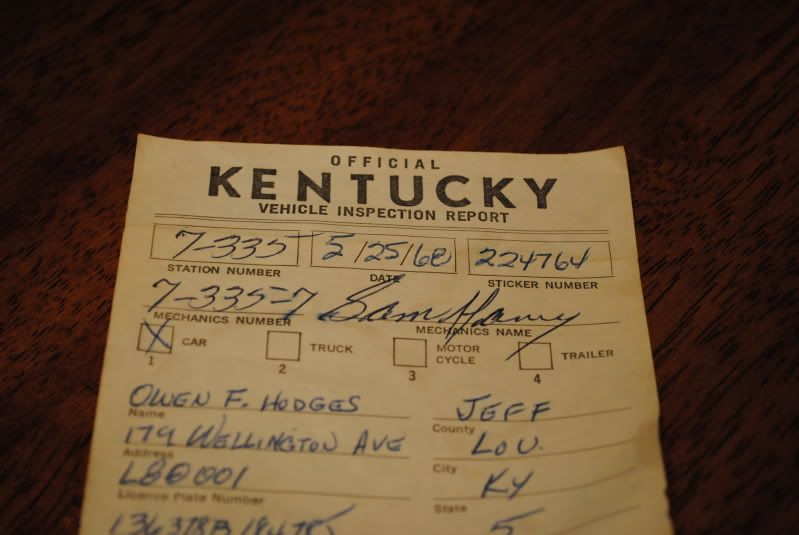 OFFICIAL
KENTUCKY
VEHICLE INSPECTION REPORT
7-335 5/25/68 224764
STATION NUMBER DATE STICKER NUMBER
7-335-7 Sam
MECHANICS NUMBER MECHANICS NAME
X CAR TRUCK MOTOR CYCLE TRAILER
1 2 3 4
OWEN F. HODGES JEFF
Name County
179 WELLINGTON AVE LOU.
Address City
KY
License Plate Number State
5